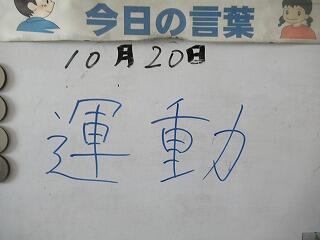 今日の言葉
10月20日
運動